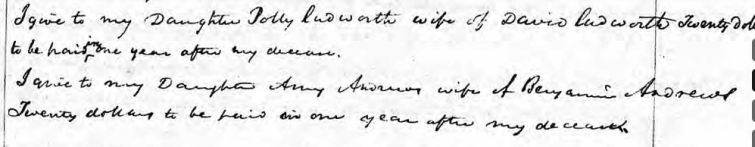 I give to my Daughter Polly Cudworth wife of David Cudworth Twenty dol
to be paid in one year after my decease.
I give to my Daughter Amy Andrews wife of Benjamin Andrews
Twenty dollars to be paid in one year after my decease